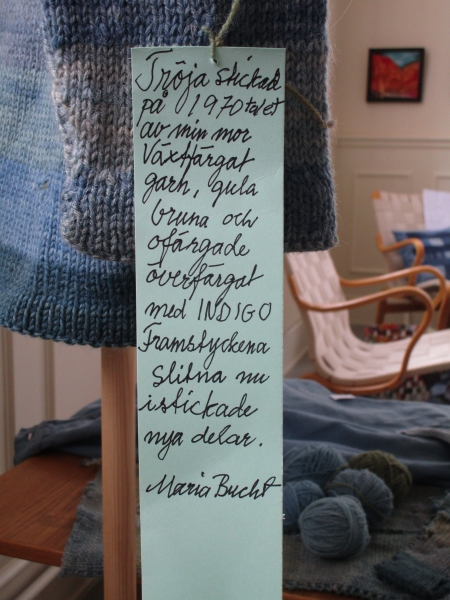 Tröja stickad
på 1970 talet
av min mor
Växtfärgat
garn, gula
bruna och
ofärgade
överfärgat
med INDIGO
Framstyckena
slitna nu
istickade
nya delar.
Maria Bucht